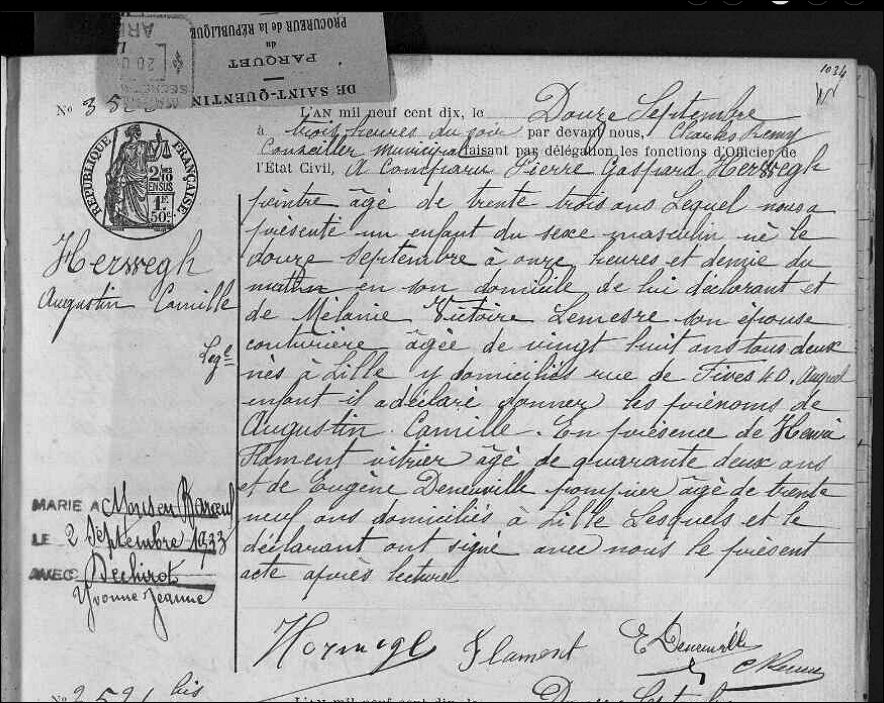 1034
PROCUREUR de la RÉPUBLIQUE
du
PARQUET
DE SAINT-QUENTIN
No 35
L'AN mil neuf cent dix, le Douze Septembre
à trois heures du soir par devant nous, Charles Remy
Conseiller municipal faisant par délégation les fonctions d'Officier de
l'État Civil, A Comparu Pierre Gaspard Herwegh
peintre âgé de trente trois ans Lequel nous a
présenté un enfant du sexe masculin né le
douze Septembre à onze heures et demie du
matin en son domicile de lui déclarant et
de Mélanie Victoire Lemesre son épouse
couturière âgée de vingt huit ans tous deux
nés à Lille y domiciliés rue de Fives 40. Auquel
enfant il a déclaré donner les prénoms de
Augustin Camille. En présence de Henri
Flament vitrier âgé de quarante deux ans
et de Eugène Deneuville pompier âgé de trente
neuf ans domiciliés à Lille Lesquels et le
déclarant ont signé avec nous le présent
acte après lecture
RÉPUBLIQUE FRANÇAISE
2/10
EN SUS
1F
50c
Herwegh
Augustin Camille
Lege
MARIE A Mons en Baroeul
LE 2 Septembre 1933
AVEC Dechirot
Yvonne Jeanne
Flament
E Deneuville
No 2521 bis
L'AN mil neuf cent dix, le Douze Septembre